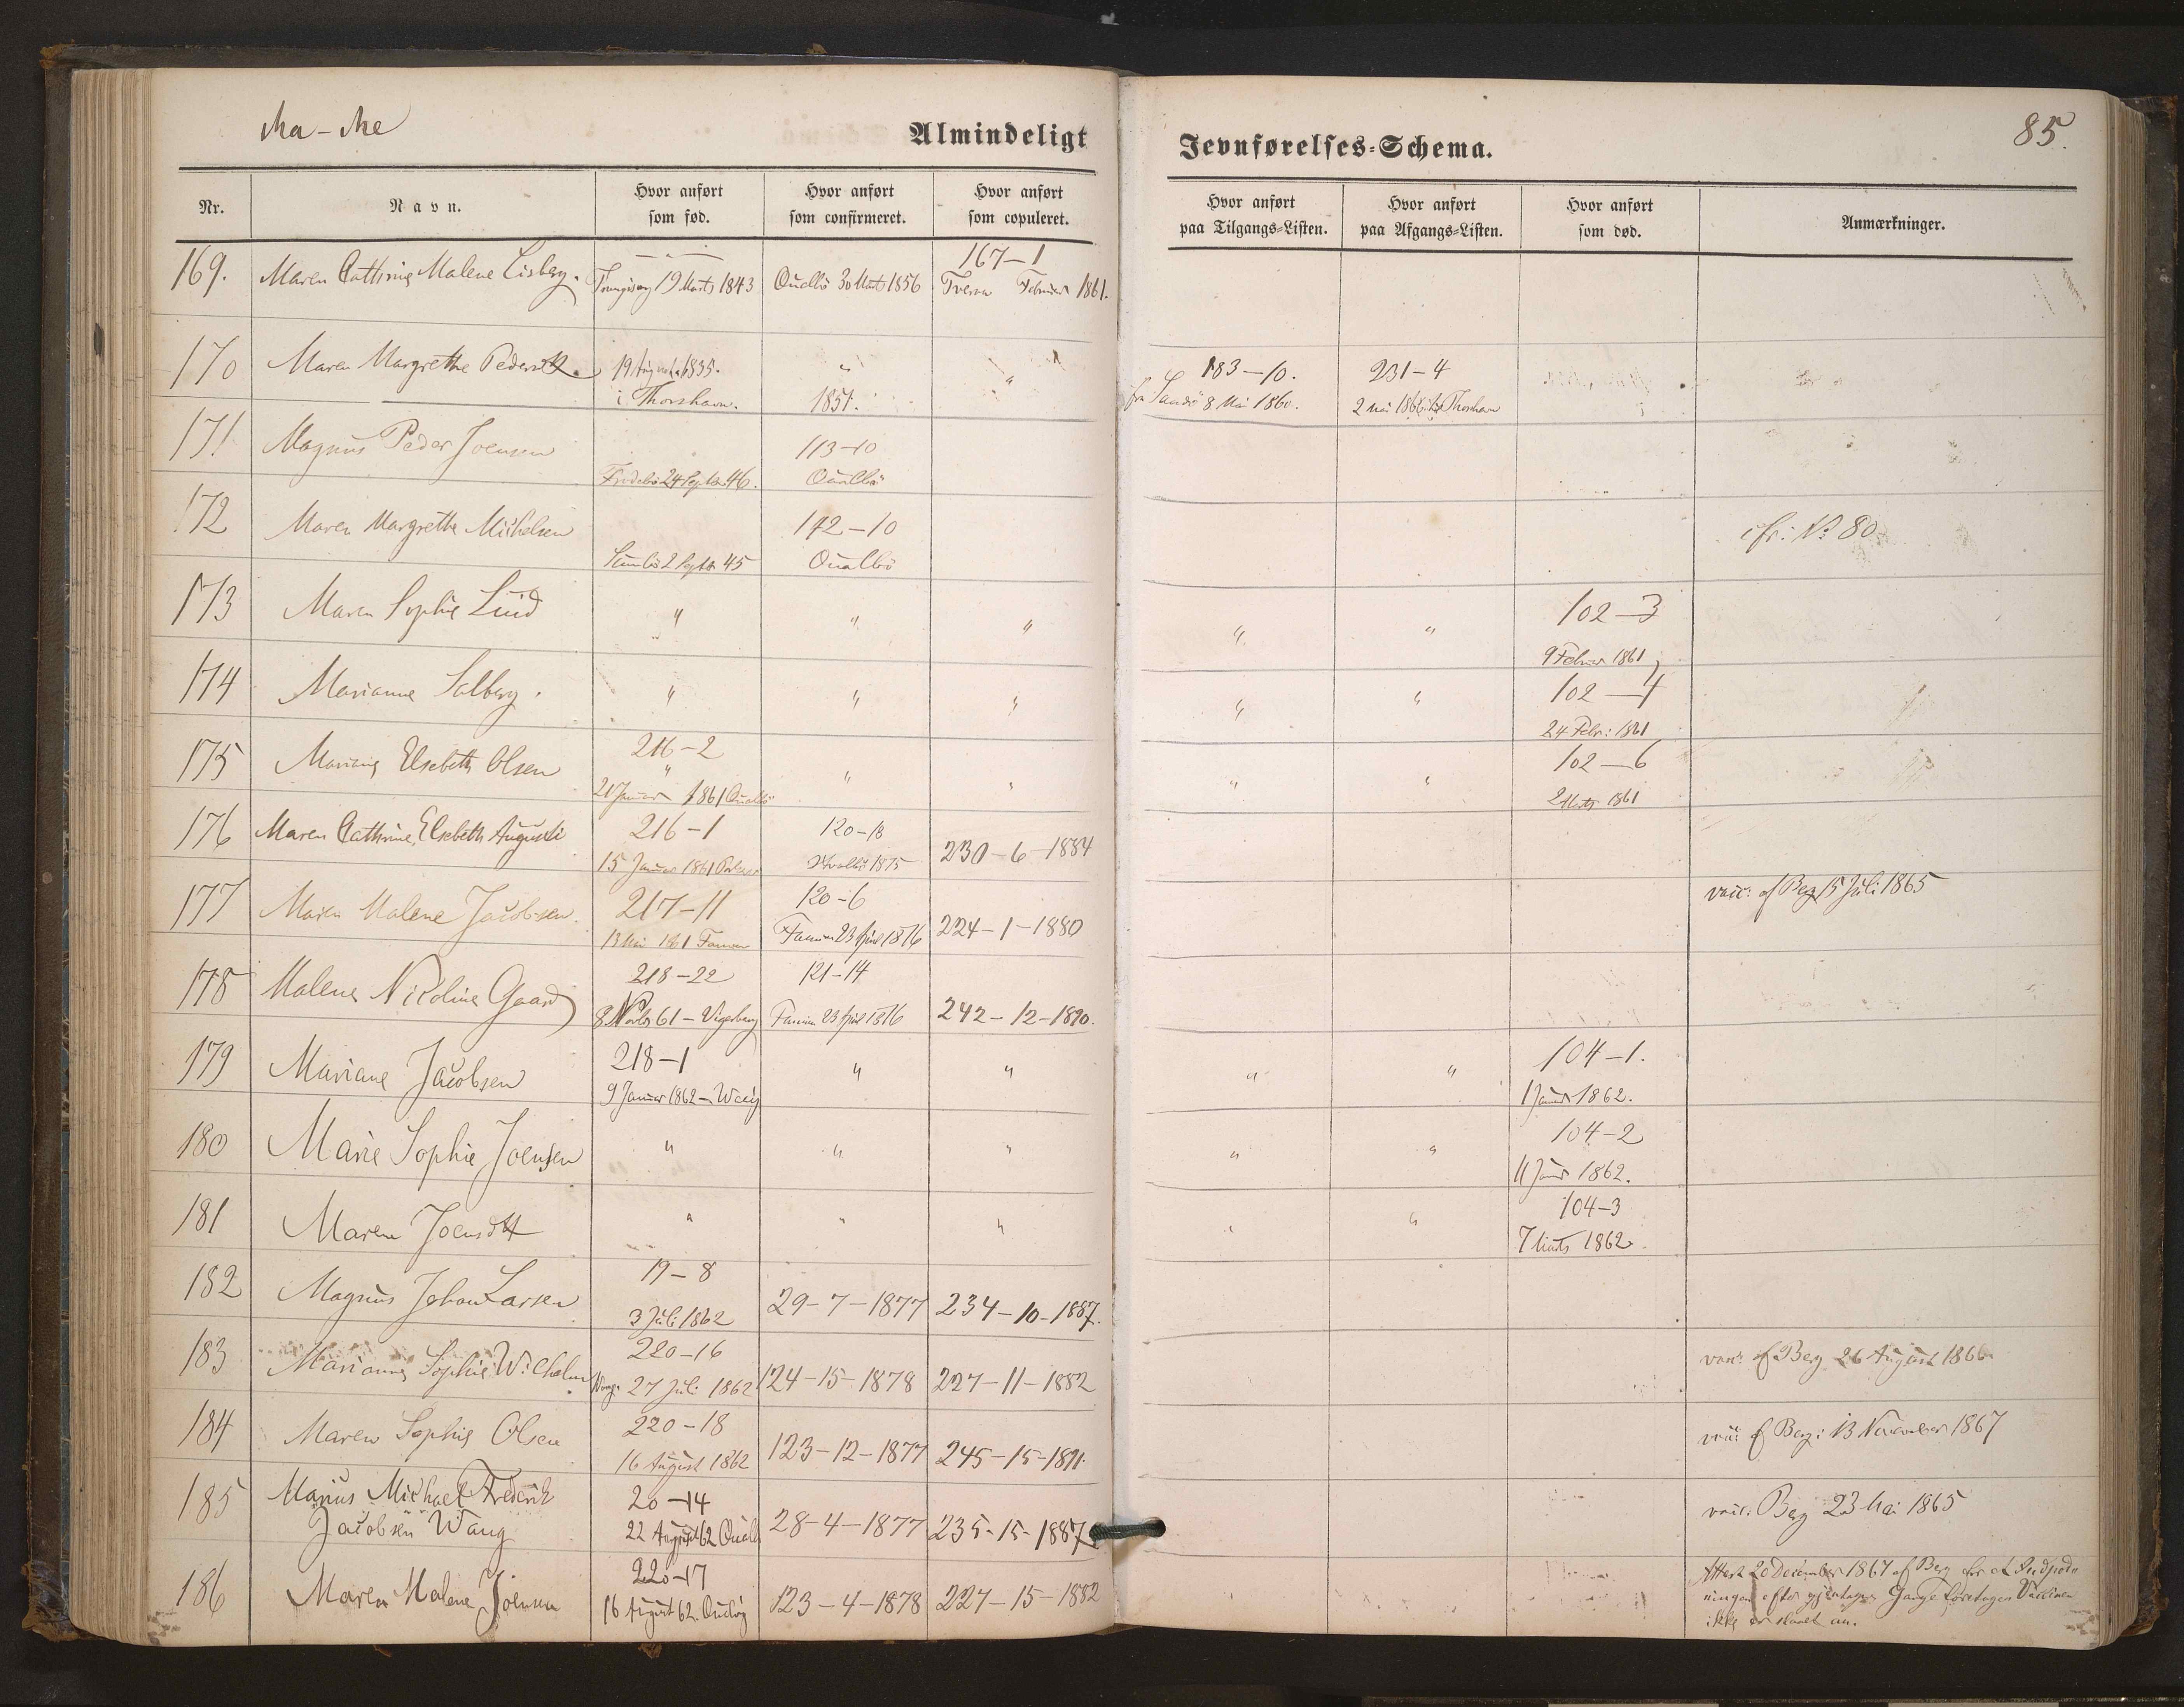 Ma-Me
Almindeligt
Jevnførelses-Schema.
85.
Nr.
Navn.
Hvor anført som fød.
Hvor anført som confirmeret.
Hvor anført som copuleret.
Hvor anført paa Tilgangs-Listen.
Hvor anført paa Afgangs-Listen.
Hvor anført som død.
Anmærkninger.
169. Maren Cathrine Malene Lisberg.
19 Marts 1843
Qualbø 30 Marts 1856
167-1
Tveraa Februar 1861.
170 Maren Margrethe
19 August 1835.
i Thorshavn.
"
1851.
"
183-10.
fra Sandø 8 Mai 1860.
231-4
2 Mai 1866 til Thorshavn
171 Magnus Peder Joensen
Frodebø 24 Septbr 46.
113-10
Qualbø
172 Maren Margrethe Michelsen
Sumbø 2 Septbr 45
142-10
Qualbø
cfr: No 80
173 Maren Sophie Lund
" " " " "
102-3
9 Februar 1861
174 Marianne Salberg.
" " " " "
102-4
24 Febr: 1861
175 Mariane Elsebeth Olsen
216-2
"
21 Januar 1861 Qualbø
" " " "
102-6
2 Marts 1861
176 Maren Cathrine Elsebeth Augusti
216-1
15 Januar 1861
120-18
Hvalbø 1875
230-6-1884
177 Maren Malene Jacobsen.
217-11
13 Mai 1861 Famien
120-6
Famien 23 April 1876
224-1-1880
vacc: af Berg 15 Juli 1865
178 Malene Nicoline Gaard
218-22
8 Novbr 61 - Vigerberg
121-14
Famien 23 April 1876
242-12-1890.
179 Mariane Jacobsen
218-1
9 Januar 1862 - Waag
" " " "
104-1.
1 Januar 1862.
180 Marie Sophie Joensen
" " " " "
104-2
11 Januar 1862.
181 Maren Joensdtt
" " " " "
104-3
7 Marts 1862.
182 Magnus Johan Larsen
19-8
3 Juli 1862
29-7-1877
234-10-1887.
183 Marianne Sophie Wilhelm
220-16
Waag 27 Juli 1862
124-15-1878
227-11-1882
vacc: af Berg 26 August 1866
184 Maren Sophie Olsen
220-18
16 August 1862
123-12-1877
245-15-1891.
vacc: af Berg: 13 November 1867
185 Marius Michael Frederik
Jacobsen Wang
20-14
22 August 62 Qualb
28-4-1877
235-15-1887.
vacc: Berg 23 Mai 1865
186 Maren Malene Joensen
220-17
16 August 62.
123-4-1878
227-15-1882
Attest 20 December 1867 af Berg for at Indpod-
ningen efter gjentagne Gange foretagen Vaccinen
ikke er slaaet an.